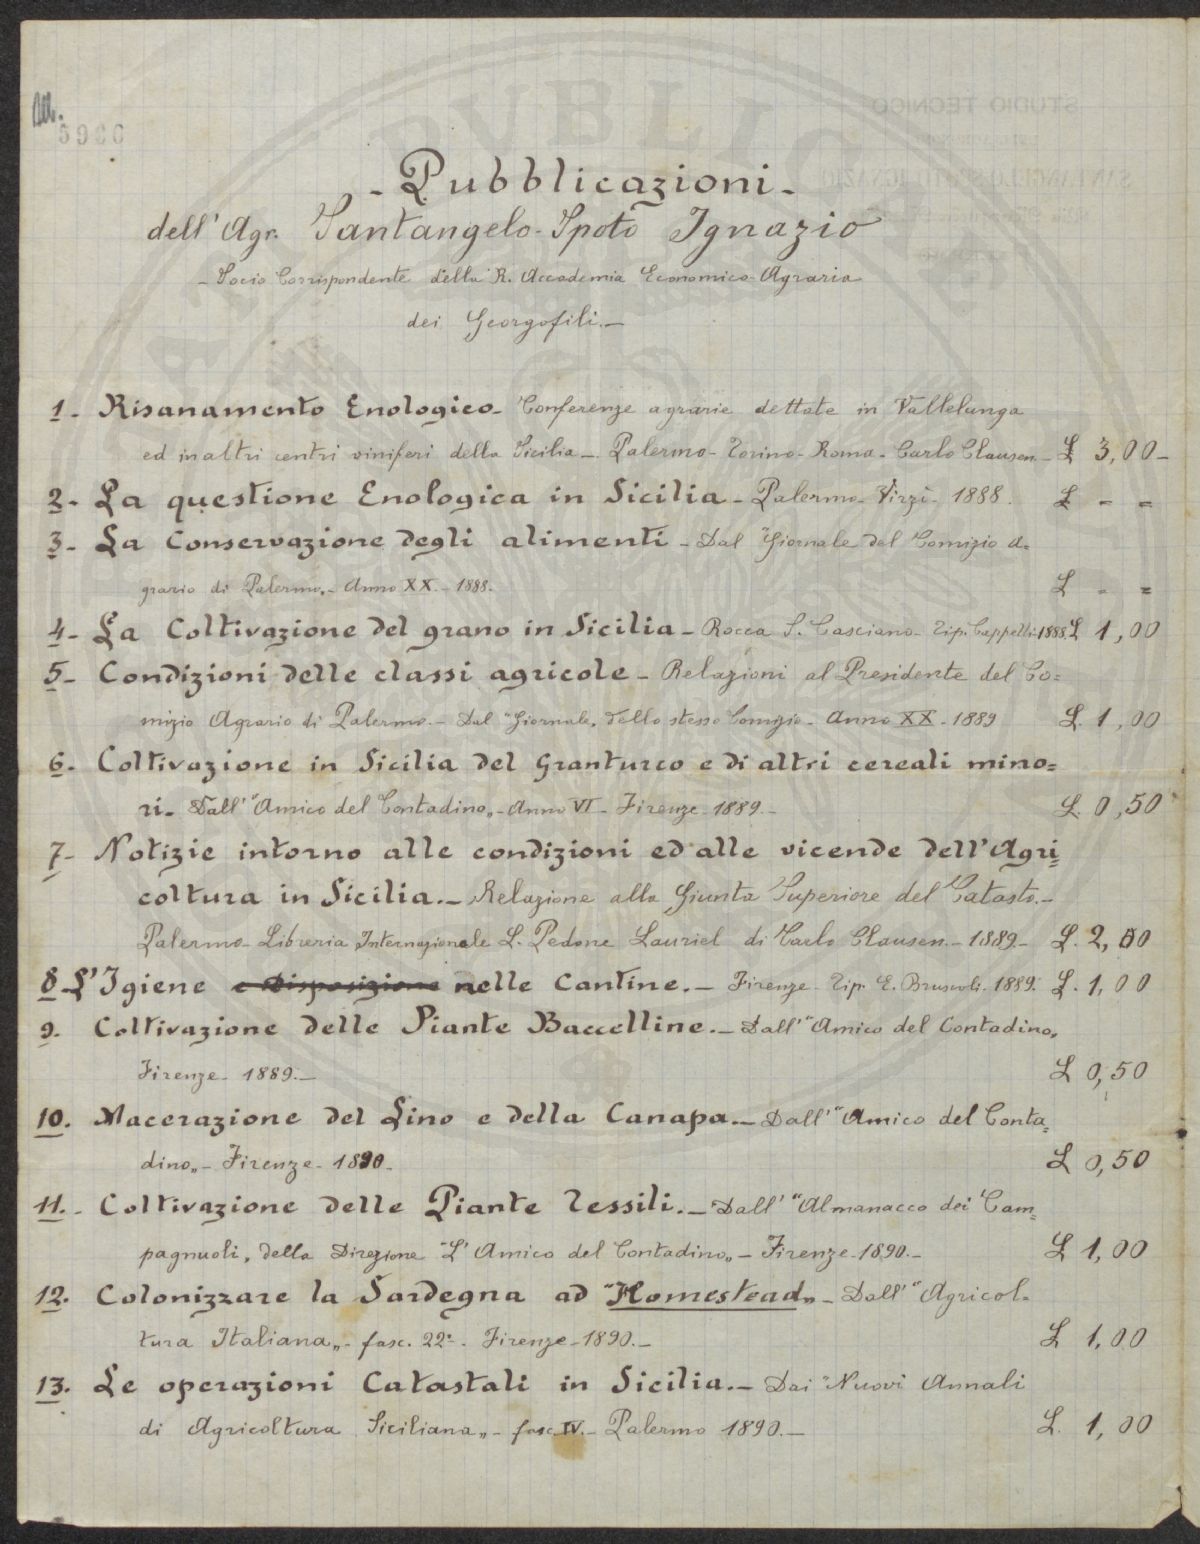 - Pubblicazioni -
dell'Agr. Santangelo-Spoto Ignazio
- Socio Corrispondente della R. Accademia Economico-Agraria
dei Georgofili.-
1- Risanamento Enologico- Conferenze agrarie dettate in Vallelunga
ed in altri centri viniferi della Sicilia-. Palermo- Torino- Roma- Carlo Clausen.- £ 3,00-
2- La questione Enologica in Sicilia- Palermo- Virzì- 1888. £ - =
3- La Conservazione degli alimenti- Dal "Giornale del Comizio A=
grario di Palermo„- Anno XX.- 1888. £ - =
4- La Coltivazione del grano in Sicilia- Rocca S. Casciano- Tip. Cappelli-1888. £ 1,00
5- Condizioni delle classi agricole- Relazioni al Presidente del Co=
mizio Agrario di Palermo.- Dal "Giornale„ dello stesso Comizio- Anno XX- 1889 £. 1,00
6- Coltivazione in Sicilia del Granturco e di altri cereali mino=
ri- Dall'"Amico del Contadino„- Anno VI- Firenze-1889.- £. 0,50
7- Notizie intorno alle condizioni ed alle vicende dell'Agri=
coltura in Sicilia.- Relazione alla Giunta Superiore del Catasto.-
Palermo- Libreria Internazionale L. Pedone Lauriel di Carlo Clausen.- 1889- £. 2,00
8- L'Igiene e Disposizione nelle Cantine.- Firenze- Tip. E. Bruscoli- 1889. £. 1,00
9. Coltivazione delle Piante Baccelline.- Dall'"Amico del Contadino„
Firenze- 1889.- £ 0,50
10. Macerazione del Lino e della Canapa.- Dall'"Amico del Conta=
dino„- Firenze- 1890- £ 0,50
11.- Coltivazione delle Piante Tessili.- Dall'"Almanacco dei Cam=
pagnuoli„ della Direzione "L'Amico del Contadino„- Firenze-1890.- £ 1,00
12. Colonizzare la Sardegna ad "Homestead„- Dall'"Agricol=
tura Italiana„- fasc. 22º- Firenze-1890.- £ 1,00
13. Le operazioni Catastali in Sicilia.- Dai "Nuovi Annali
di Agricoltura Siciliana„- fasc. IV.- Palermo 1890.- £. 1,00